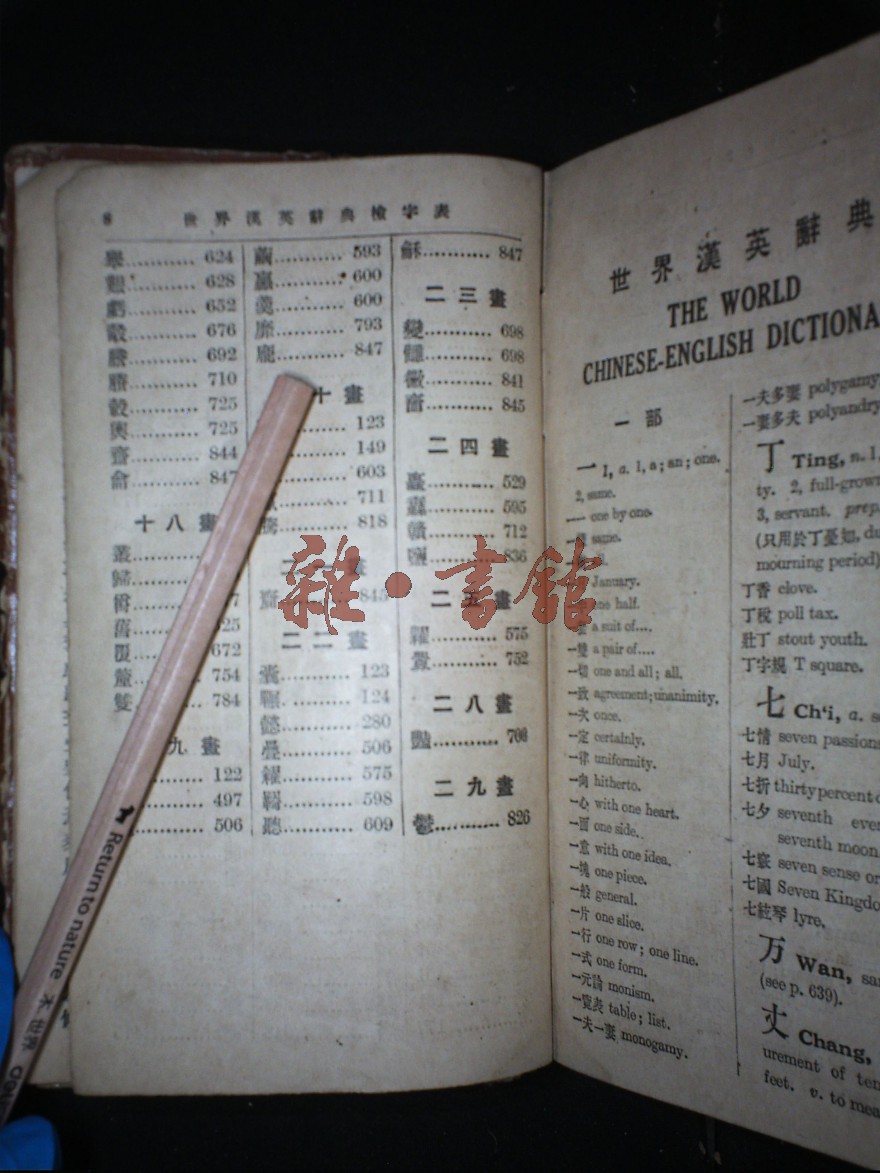 8 世界漢英辭典檢字表
舉………… 624
………… 628
虧………… 652
轂………… 676
謄………… 692
………… 710
………… 725
輿………… 725
齋………… 844
龠………… 847
十八畫
叢…………
歸…………
舊…………25
覆…………672
…………754
雙…………784
九畫
122
497
506
繭………… 593
羸………… 600
羹………… 600
靡………… 793
龐………… 847
十畫
123
149
603
711
騰………… 818
齎………… 845
二二畫
囊………… 123
………… 124
懿………… 280
疊………… 506
糴………… 575
羈………… 598
聽………… 609
龢………… 847
二三畫
變………… 698
讎………… 698
黴………… 841
齏………… 845
二四畫
矗………… 529
………… 595
贛………… 712
鹽………… 836
二五畫
糶………… 575
釁………… 752
二八畫
豔………… 700
二九畫
鬱………… 826
世界漢英辭典
THE WORLD
CHINESE-ENGLISH DICTIONA
一部
一 I, a. 1, a; an; one.
2, same.
一一 one by one.
same.
January.
one half.
a suit of....
一雙 a pair of....
一切 one and all; all.
一致 agreement; unanimity.
一次 once.
一定 certainly.
一律 uniformity.
一向 hitherto.
一心 with one heart.
一面 one side.
一意 with one idea.
一塊 one piece.
一般 general.
一片 one slice.
一行 one row; one line.
一式 one form.
一元論 monism.
一覽表 table; list.
一夫一妻 monogamy.
一夫多妻 polygamy.
一妻多夫 polyandry
丁 Ting, n. 1,
ty. 2, full-grown
3, servant. prep.
(只用於丁憂如, du
mourning period)
丁香 clove.
丁稅 poll tax.
壯丁 stout youth.
丁字規 T square.
七 Ch'i, a. s
七情 seven passions
七月 July.
七折 thirty percent o
七夕 seventh eve
seventh moon
七竅 seven sense or
七國 Seven Kingdo
七絃琴 lyre.
万 Wan, sa
(see p. 639).
丈 Chang,
urement of ten
feet. v. to mea
Return to nature 不.世界
雜·書館